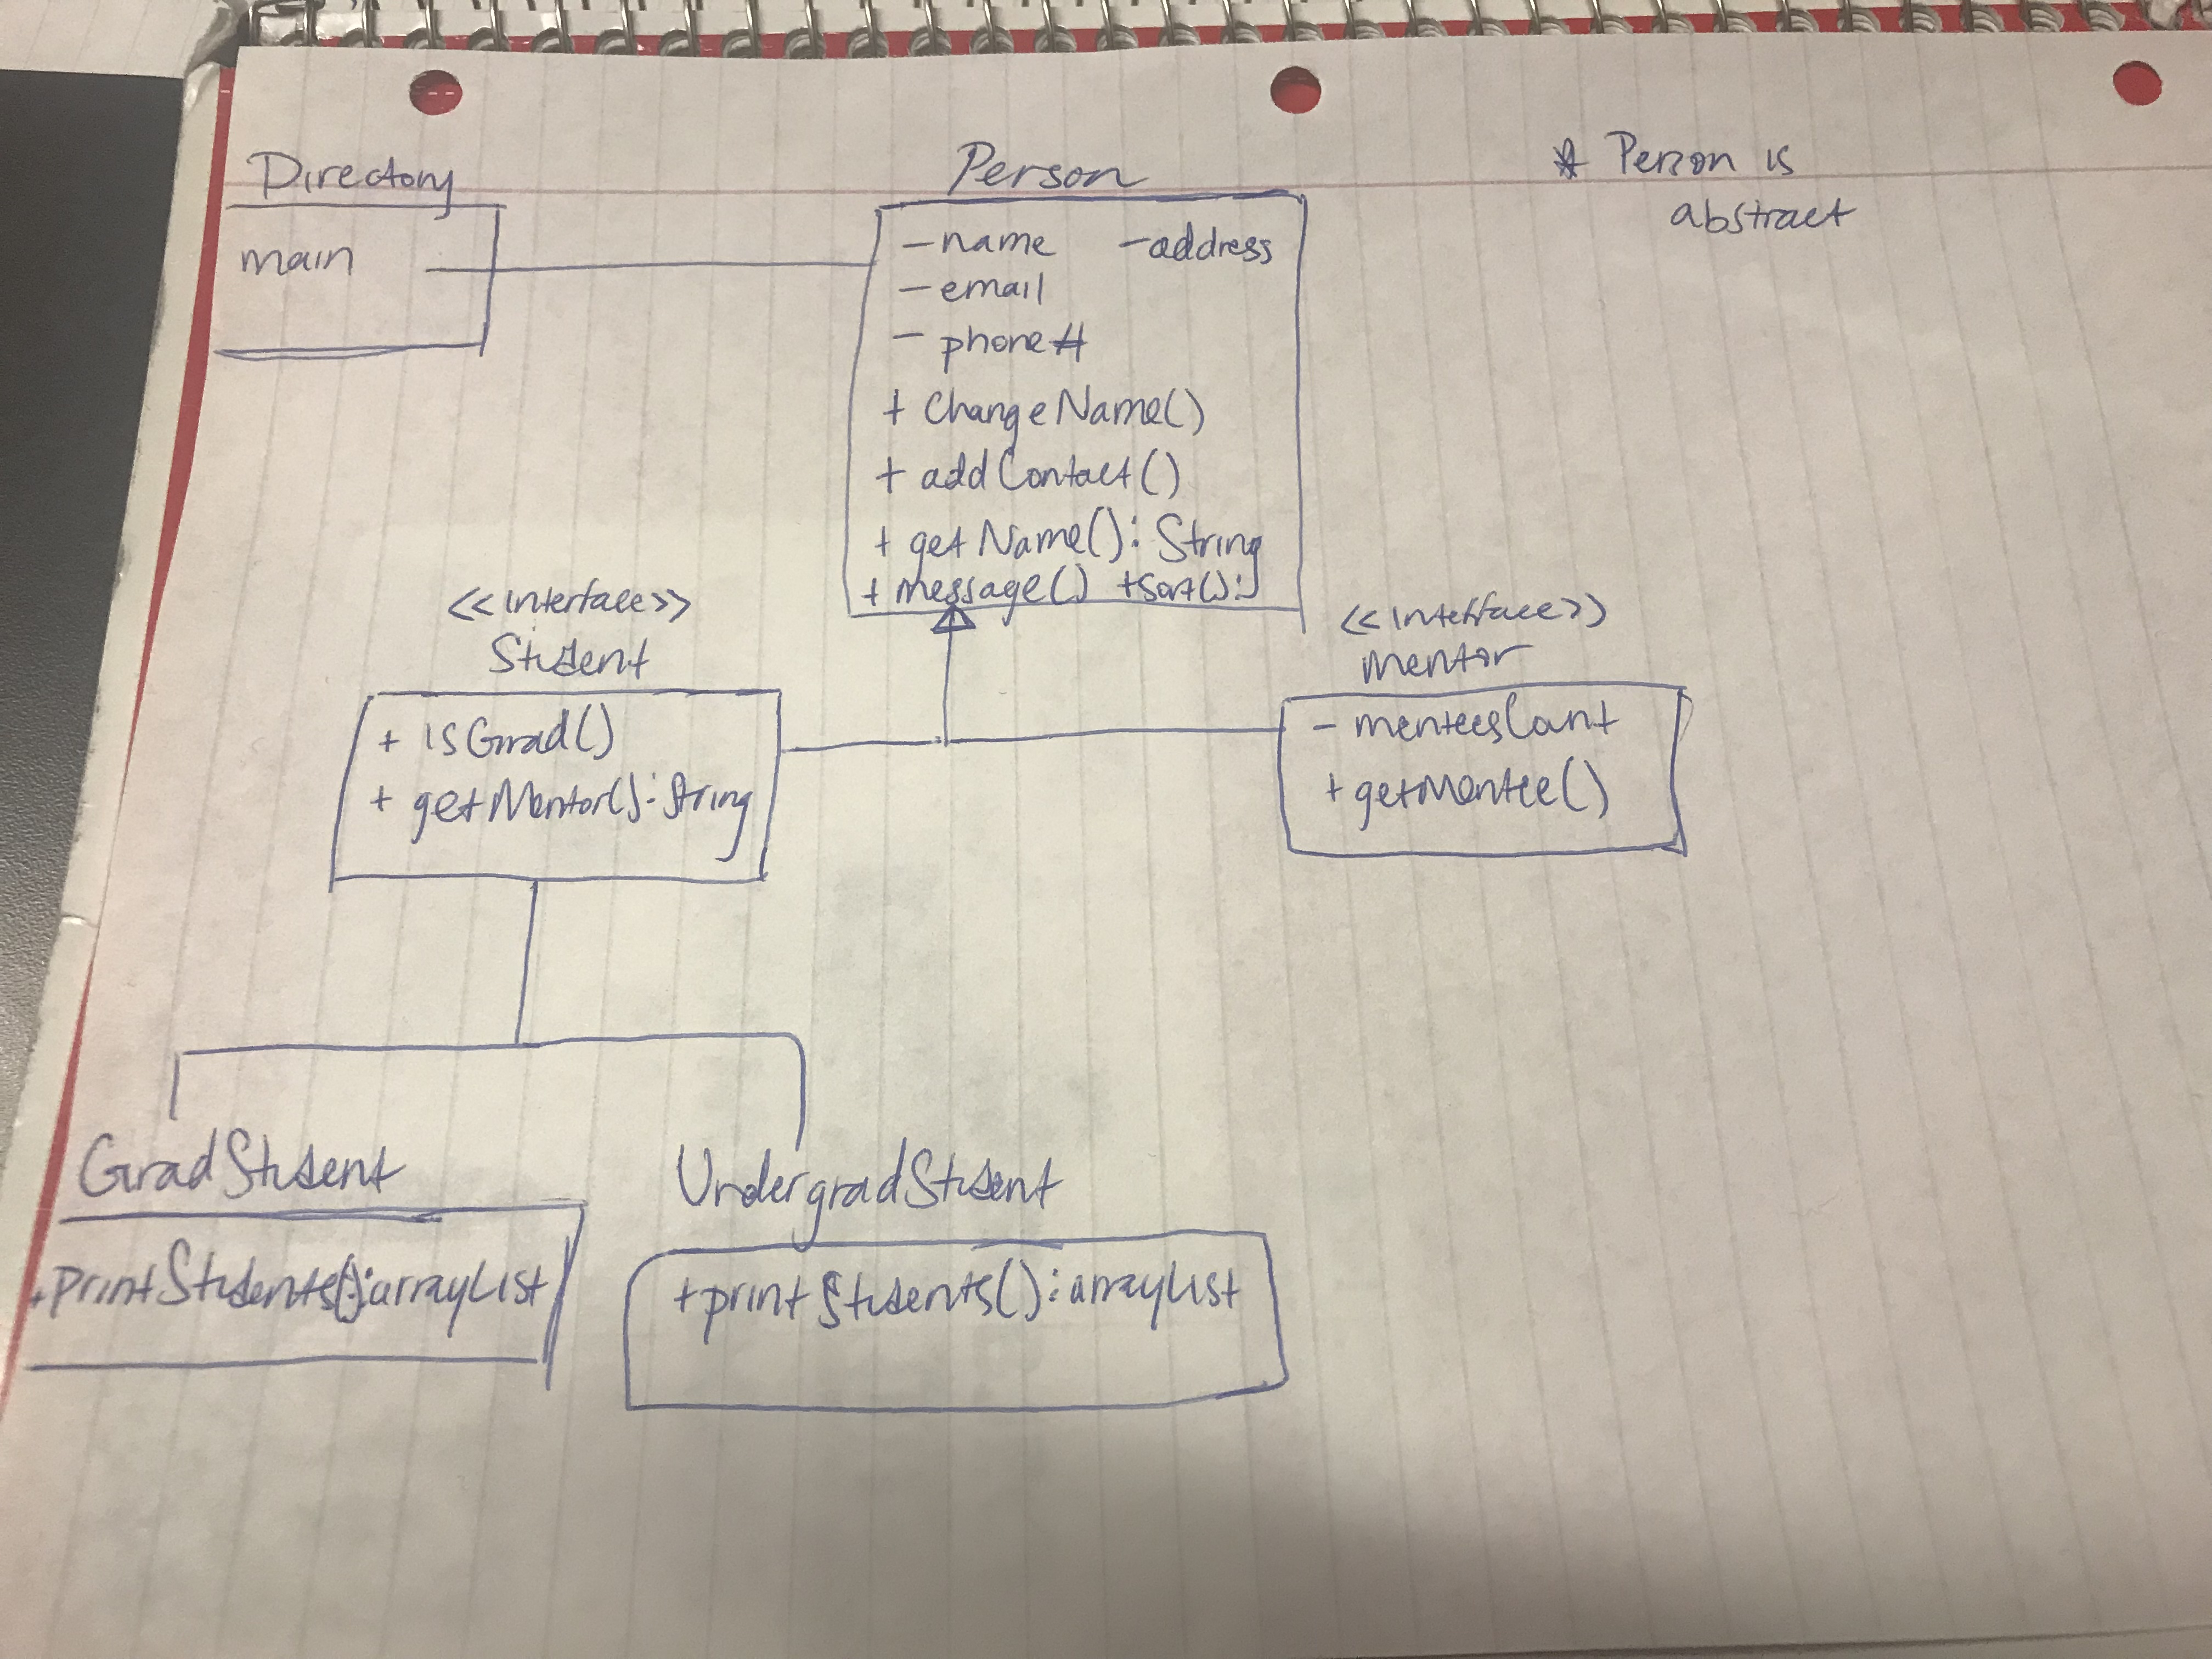 Directory
main
Person
-name -address
-email
- phone#
+ changeName()
+ addContact()
+ getName(): String
+ message() +sort():
* Person is
abstract
<<interface>>
Student
+ isGrad()
+ getMentor(): String
<<interface>>
mentor
- menteesCount
+getMentee()
GradStudent
+printStudents():arrayList
UndergradStudent
+printStudents():arrayList